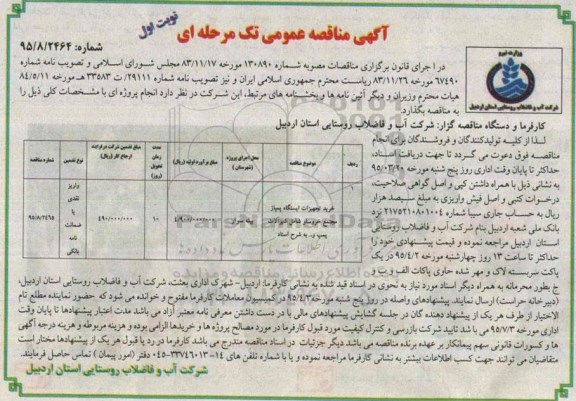 آگهی مناقصه عمومی تک مرحله ای
نوبت اول
شماره: ۹۵/۸/۲۴۶۴
وزارت نیرو
شرکت آب و فاضلاب روستایی استان اردبیل
در اجرای قانون برگزاری مناقصات مصوبه شماره ۱۳۰۸۹۰ مورخه ۸۳/۱۱/۱۷ مجلس شورای اسلامی و تصویب نامه شماره
۶۷۴۹۰ مورخه ۸۳/۱۱/۲۶ ریاست محترم جمهوری اسلامی ایران و نیز تصویب نامه شماره ۲۹۱۱۱/ت ۳۳۵۸۳ هـ مورخه ۸۴/۵/۱۱
هیات محترم وزیران و دیگر آئین نامه ها و بخشنامه های مرتبط، این شرکت در نظر دارد انجام پروژه ای با مشخصات کلی ذیل را
به مناقصه بگذارد.
کارفرما و دستگاه مناقصه گزار: شرکت آب و فاضلاب روستایی استان اردبیل
لذا از کلیه تولیدکنندگان و فروشندگان برای انجام
مناقصه فوق دعوت می گردد تا جهت دریافت اسناد،
حداکثر تا پایان وقت اداری روز پنج شنبه مورخه ۹۵/۰۳/۲۰
به نشانی ذیل با همراه داشتن کپی و اصل گواهی صلاحیت،
درخواست کتبی و اصل فیش واریزی به مبلغ سیصد هزار
ریال به حساب جاری سیبا شماره ۲۱۷۵۲۱۰۸۰۱۰۰۴ نزد
بانک ملی شعبه اردبیل بنام شرکت آب و فاضلاب روستایی
استان اردبیل مراجعه نموده و قیمت پیشنهادی خود را
حداکثر تا ساعت ۱۳ روز چهارشنبه مورخه ۹۵/۴/۲ در یک
پاکت سربسته لاک و مهر شده حاوی پاکات الف و ب و
ردیف
موضوع مناقصه
محل اجرای پروژه (شهرستان)
مبلغ برآورد اولیه (ریال)
مدت زمان تحویل (روز)
مبلغ تضمین شرکت در فرایند ارجاع کار (ریال)
نوع تضمین
شماره مناقصه
۱
خرید تجهیزات ایستگاه پمپاژ
پمپ و.. به شرح اسناد
بیله سوار
۱۰
۴۹۰/۰۰۰/۰۰۰
واریز نقدی یا ضمانت نامه بانکی
۹۵/۸/۲۴۶۵
ج بطور محرمانه به همراه دیگر اسناد مورد نیاز به نحوی در اسناد قید شده به نشانی کارفرما: اردبیل - شهرک اداری بعثت، شرکت آب و فاضلاب روستایی استان اردبیل،
(دبیرخانه حراست) ارسال نمایند. پیشنهادهای واصله در روز پنج شنبه مورخه ۹۵/۴/۳ در کمیسیون معاملات کارفرما مفتوح و خوانده می شود که حضور نماینده مطلع تام
الاختیار از طرف هر یک از پیشنهاد دهنده گان در جلسه گشایش پیشنهادهای مالی با در دست داشتن معرفی نامه معتبر آزاد می باشد مدت اعتبار پیشنهادها تا پایان وقت
اداری مورخه ۹۵/۷/۳ می باشد تایید شرکت بازرسی و کنترل کیفیت مورد قبول کارفرما در مورد مصالح پروژه ها و خریدها الزامی بوده و هزینه مربوطه و هزینه درجه آگهی
ها و کسورات قانونی سهم پیمانکار بر عهده برنده مناقصه می باشد دیگر جزئیات در اسناد مناقصه مندرج می باشد کارفرما در رد یا قبول هر یک از پیشنهادها مختار است
متقاضیان می توانند جهت کسب اطلاعات بیشتر به نشانی کارفرما مراجعه نموده و یا با شماره تلفن های ۱۴-۳۳۷۴۶۰۱۳-۰۴۵ دفتر (امور پیمان) تماس حاصل فرمایند.
شرکت آب و فاضلاب روستایی استان اردبیل